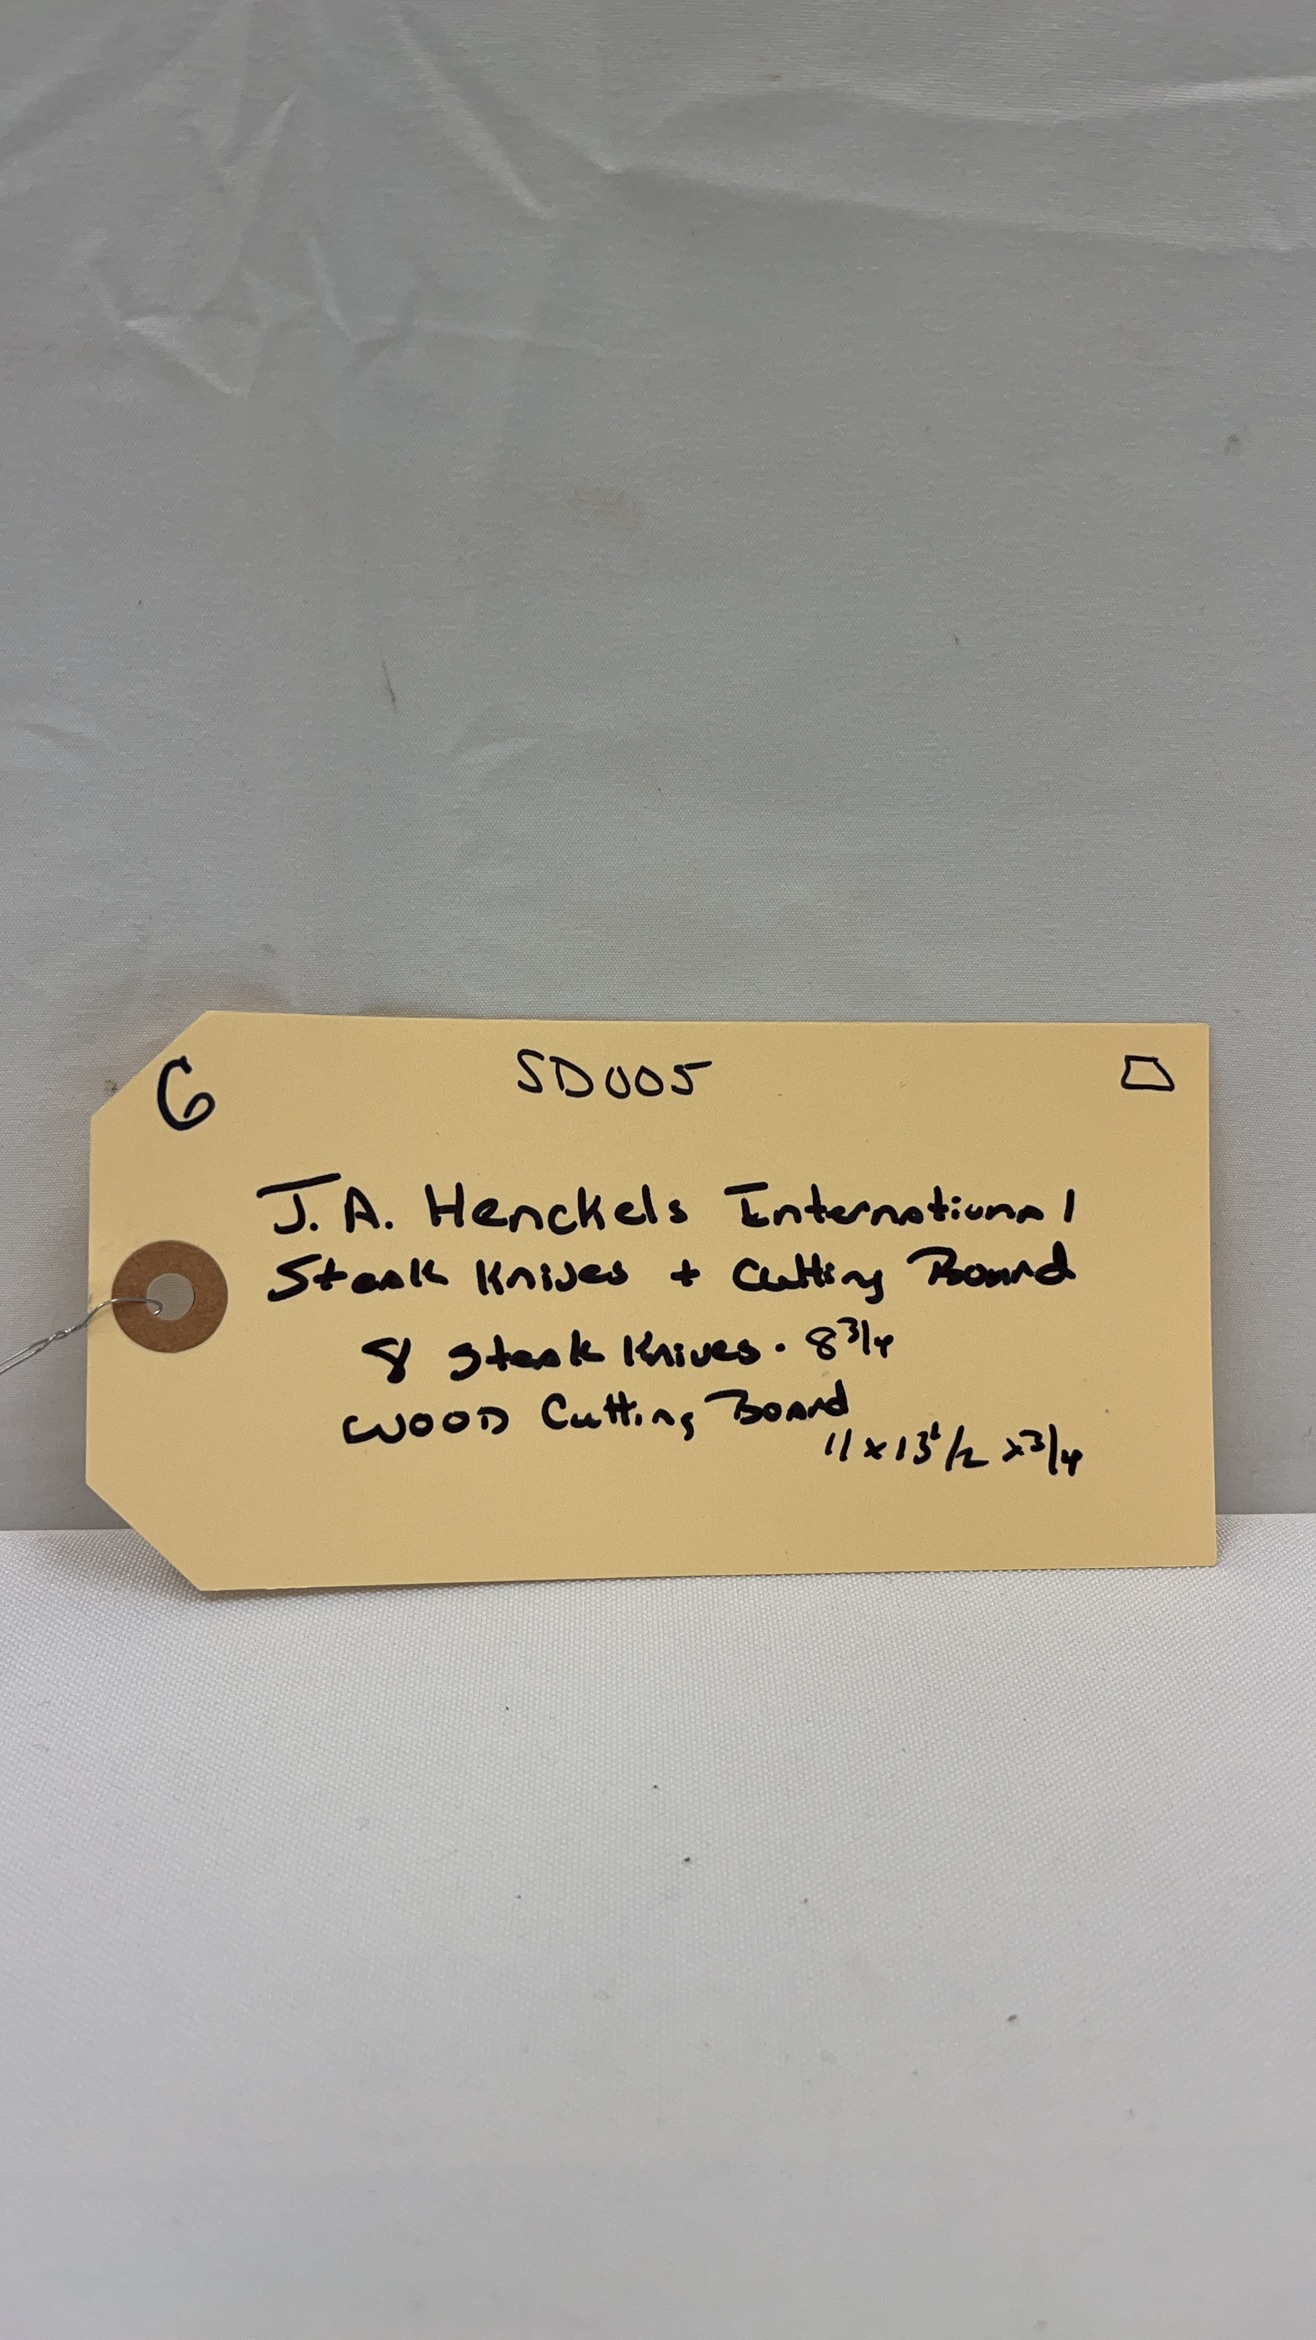 6
SD005
J.A. Henckels International
Steak Knives + Cutting Board
8 Steak Knives. 8 3/4
WOOD Cutting Board
11 x 13 1/2 x 3/4